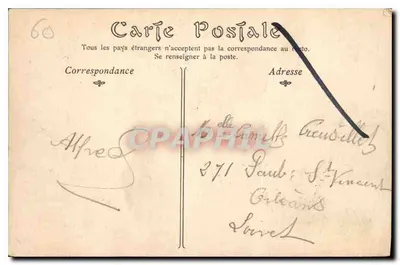 60
Carte Postale
Tous les pays étrangers n'acceptent pas la correspondance au recto.
Se renseigner à la poste.
Correspondance
Adresse
Alfred
Melle
271 Faub: St Vincent
Orléans
Loiret
CARTE-POSTALE-PHILATELIE